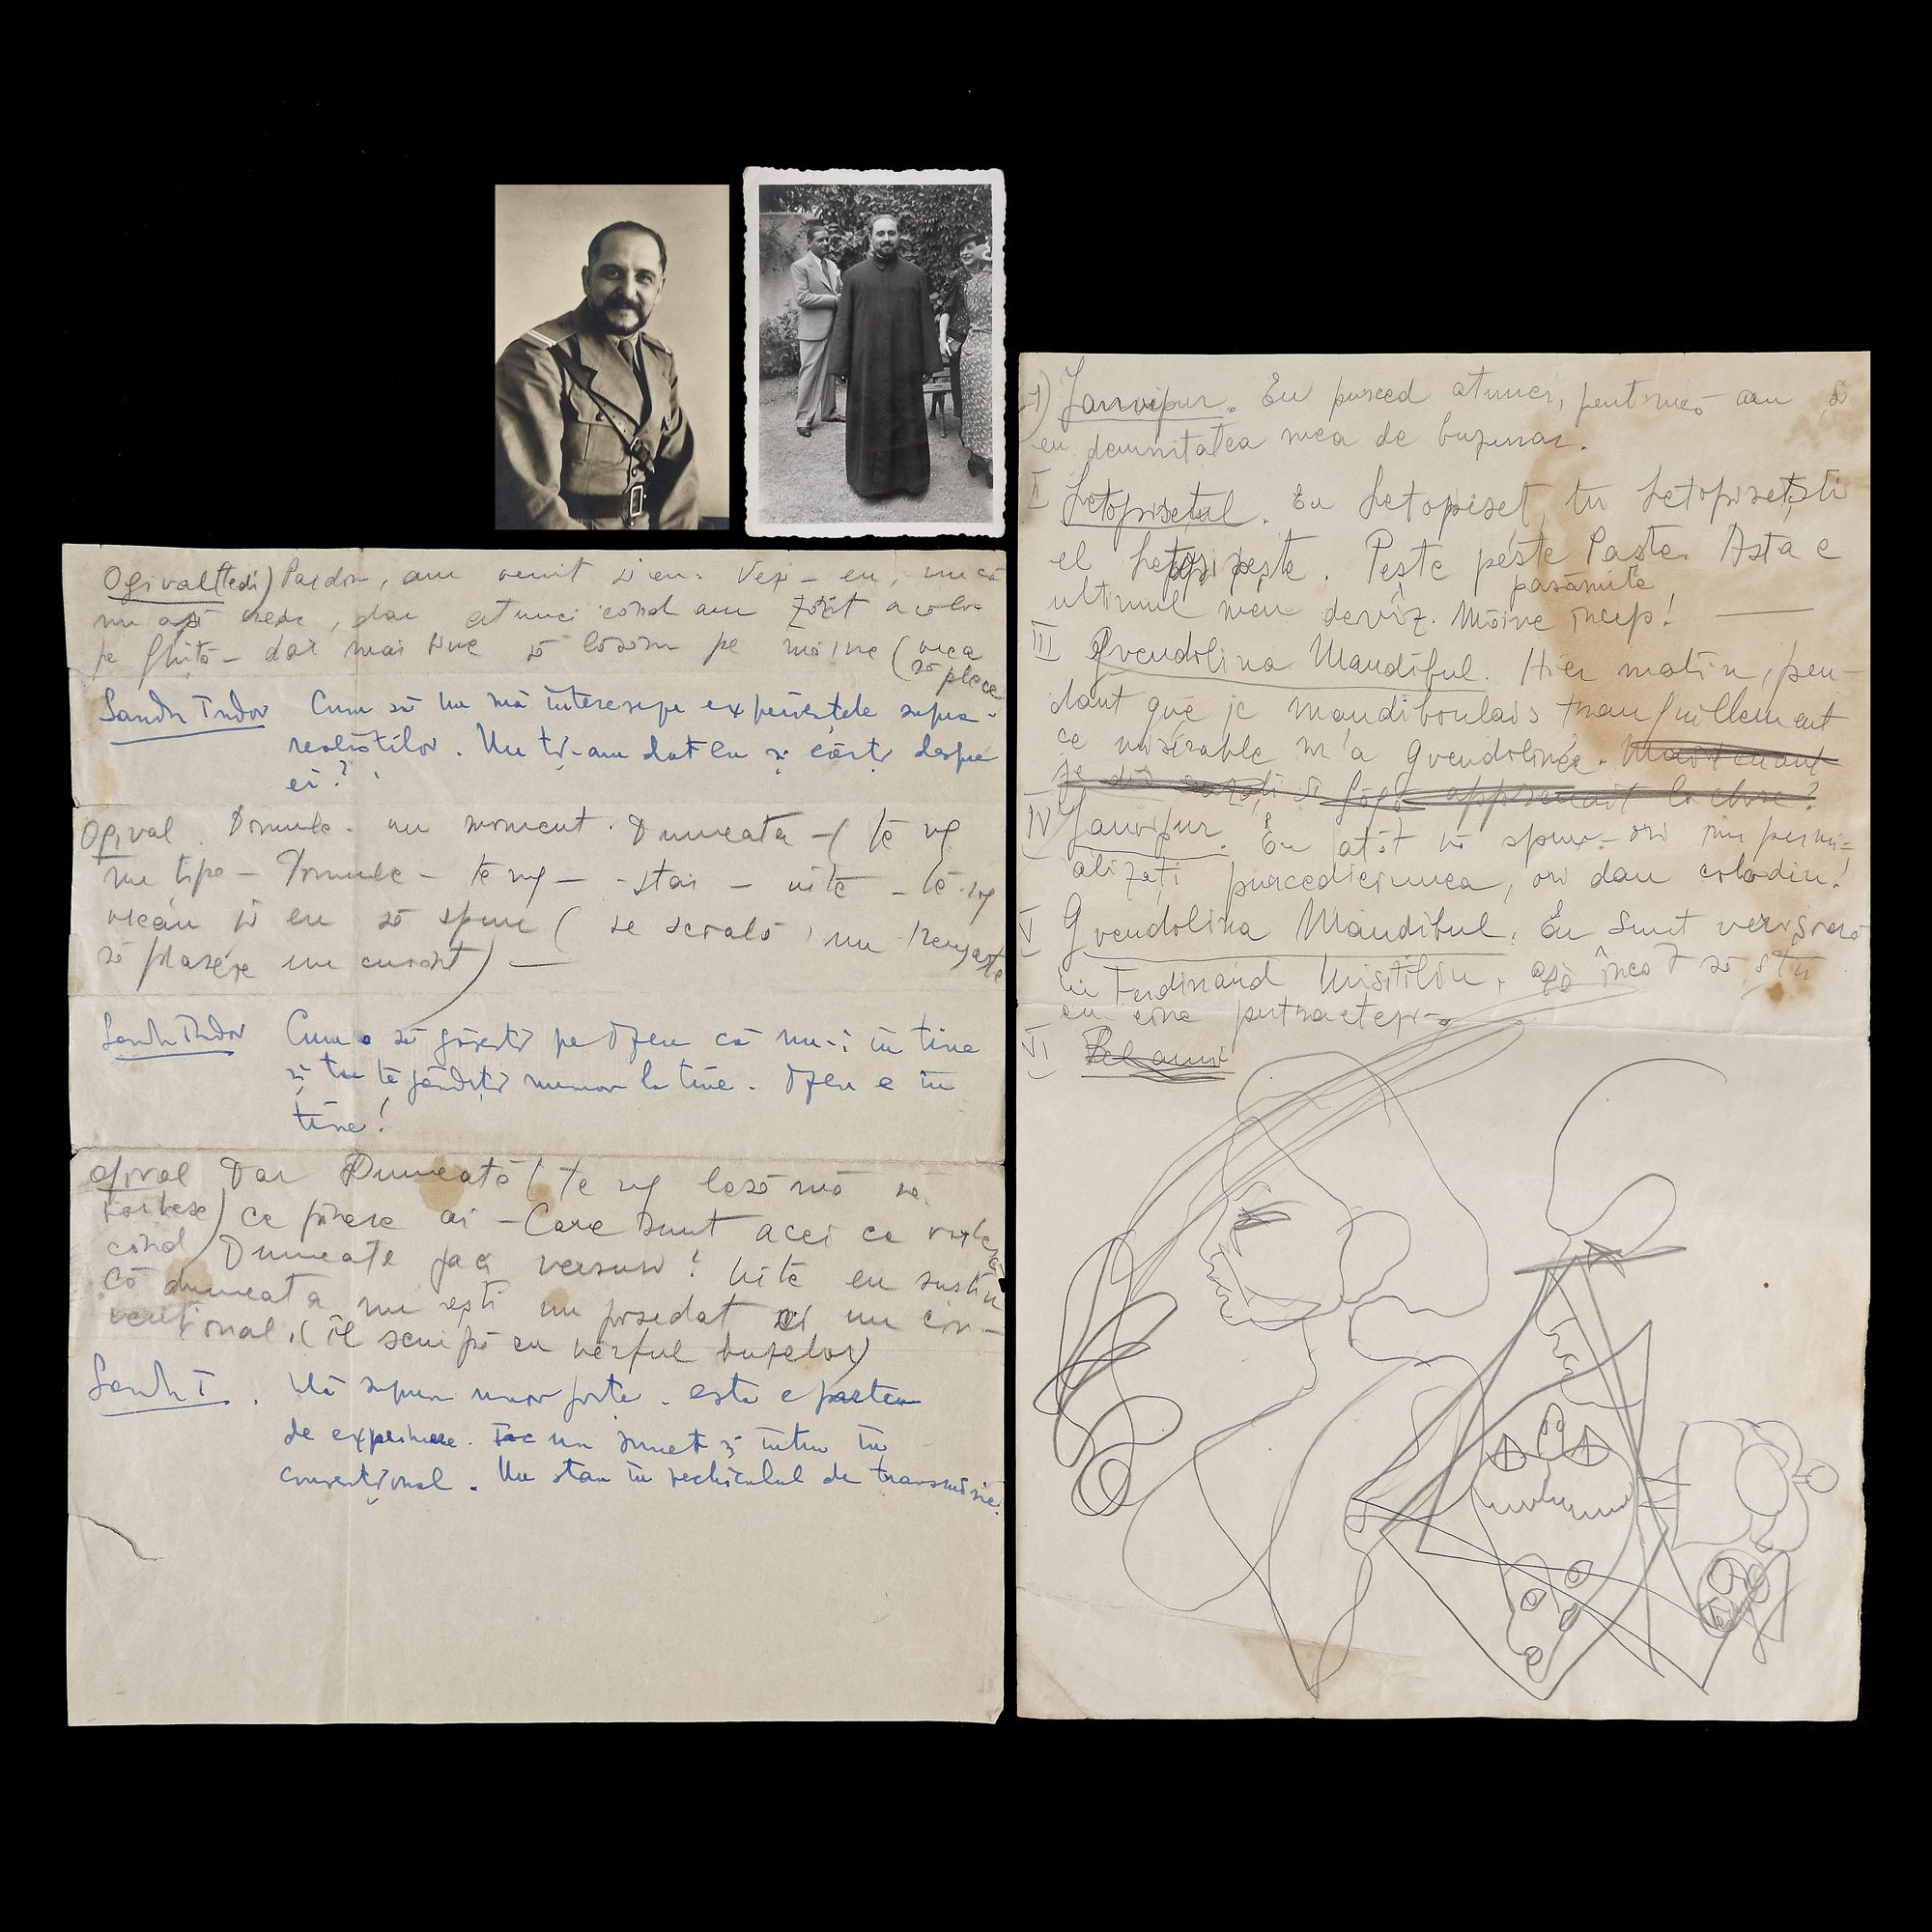 Ogival (tedi) Pardon, am venit și eu. Vezi - eu, nu că
nu aș crede, dar atunci când am zărit acolo
pe Ghiță - dar mai bine să lăsăm pe mâine (vrea
să plece
Sandu Tudor Cum să nu mă intereseze experiențele supra-
realiștilor. Nu ți-am dat eu și cărți despre
ei?
Ogival Domnule - un moment. Dumneata - (te rog
nu țipa - Domnule - te rog - stai - uite - te rog
vreau și eu să spun (se scoală, nu
să plaseze un cuvânt) —
Sandu Tudor Cum o să găsești pe Dzeu că nu-i în tine
și tu te gândești numai la tine. Dzeu e în
tine!
Ogival Dar Dumneata (te rog lasă-mă să
vorbesc) ce părere ai - Care sunt acei ce
când Dumneata faci versuri? Uite eu susțin
că dumneata nu ești un posedat ci un con-
vențional. (îl scuipă cu vârful buzelor)
Sandu T. Mă supun unor forțe. asta e partea
de exprimare. Fac un sonet și intru în
convențional. Nu stau în vechiculul de transmisie.
I) Janvipur. Eu purced atunci, pentrucă am și
eu demnitatea mea de buzunar.
II Letopisetul. Eu Letopiset, tu Letopisetști
el Letopisește. Pește pește Paște. Asta e
pasămite
ultimul meu deviz. Mâine încep! —
III Gvendolina Mandibul. Hier matin, pen-
dant que je mandiboulais tranquillement
ce misérable m'a gvendolinée. Maintenant
je dis
IV Janvipur. Eu atât vă spun - ori îmi
alizați purcediciunea, ori dau colodiu!
V Gvendolina Mandibul. Eu sunt verișoară
lui Ferdinand Misitiliu, așa încât să știi
cu cine
VI Bel ami